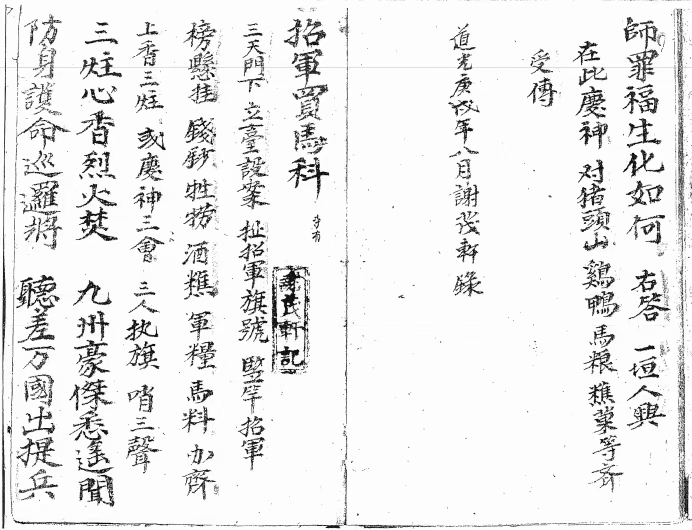 師罪福生化如何 右答 一垣人興
在此慶神 对猪頭山 鷄鴨 馬粮 樵菓等斉
受傳
道光庚戌年八月謝茂軒錄
招軍買馬科
謝茂軒記
三天門下 立臺設案 扯招軍旗號 竪竿招軍
榜懸挂 錢鈔 牲捞 酒樵 軍糧 馬料 办齊
上香三炷 或慶神三會 三人执旗 哨三聲
三炷心香烈火焚 九州豪傑悉遥聞
防身護命巡邏將 聽差万國出提兵